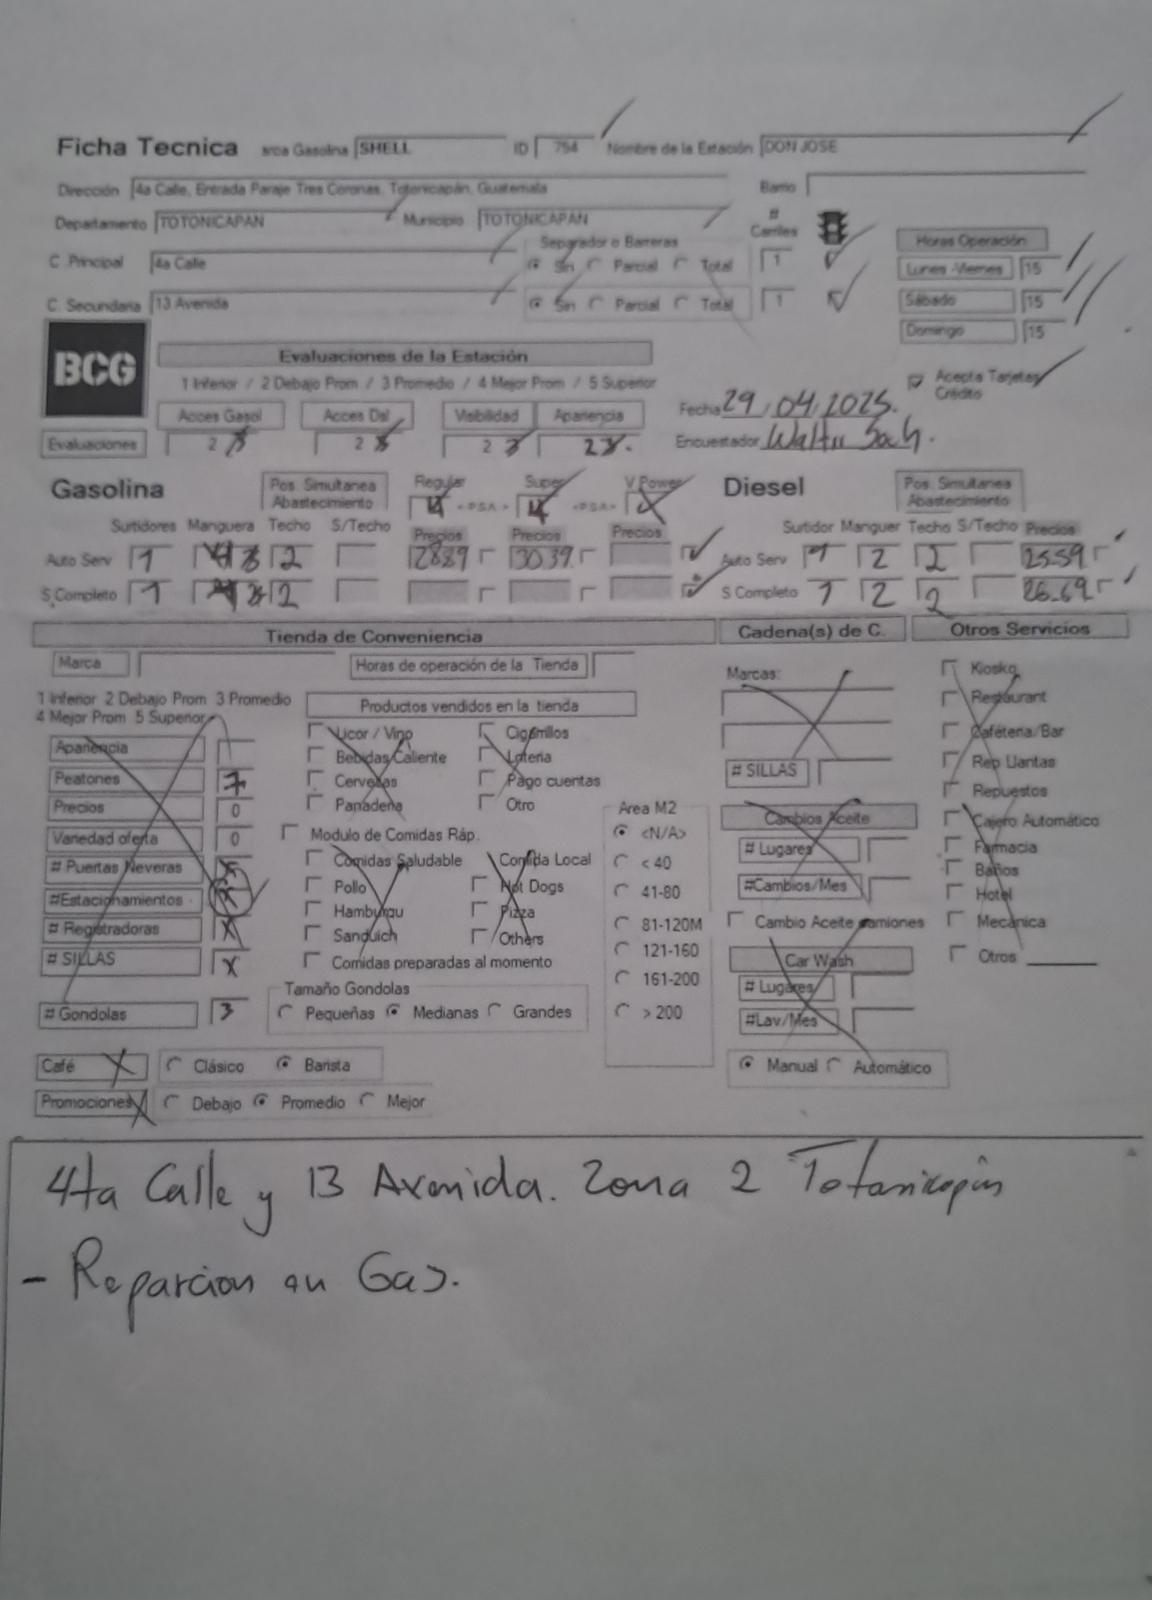 Ficha Tecnica arca Gasolina SHELL ID 754 Nombre de la Estación DON JOSE
Dirección 4a Calle, Entrada Paraje Tres Coronas, Totonicapán, Guatemala Barrio
Departamento TOTONICAPAN Municipio TOTONICAPAN # Carriles
Separador o Barreras Horas Operación
C. Principal 4a Calle Sin Parcial Total 1 Lunes -Viernes 15
C. Secundaria 13 Avenida Sin Parcial Total 1 Sábado 15
Domingo 15
BCG Evaluaciones de la Estación
1 Inferior / 2 Debajo Prom / 3 Promedio / 4 Mejor Prom / 5 Superior Acepta Tarjetas Crédito
Acces Gasol Acces Dsl Visibilidad Apariencia Fecha 29/04/2025.
Evaluaciones 2 2 2 3 2 Encuestador
Gasolina Pos. Simultanea Abastecimiento Regular <PSA> Super <PSA> V Power Diesel Pos. Simultanea Abastecimiento
Surtidores Manguera Techo S/Techo Precios Precios Precios Surtidor Manguer Techo S/Techo Precios
Auto Serv 1 3 2 28.89 30.39 Auto Serv 1 2 2 25.59
S.Completo 1 3 2 S Completo 1 2 2 26.69
Tienda de Conveniencia Cadena(s) de C. Otros Servicios
Marca Horas de operación de la Tienda Marcas: Kiosko
1 Inferior 2 Debajo Prom 3 Promedio Productos vendidos en la tienda Restaurant
4 Mejor Prom 5 Superior Licor / Vino Cigarrillos Cafétería/Bar
Apariencia Bebidas Caliente Lotería Rep Llantas
Peatones 7 Cervezas Pago cuentas # SILLAS Repuestos
Precios 0 Panadería Otro Area M2 Cambios Aceite Cajero Automático
Variedad oferta 0 Modulo de Comidas Ráp. <N/A> # Lugares Farmacia
# Puertas Neveras Comidas Saludable Comida Local < 40 Baños
#Estacionamientos Pollo Hot Dogs 41-80 #Cambios/Mes Hotel
# Registradoras X Hamburgu Pizza 81-120M Cambio Aceite camiones Mecánica
# SILLAS X Sanduich Others 121-160 Car Wash Otros
Comidas preparadas al momento 161-200 # Lugares
# Gondolas 3 Tamaño Gondolas Pequeñas Medianas Grandes > 200 #Lav/Mes
Café X Clásico Barista Manual Automático
Promociones X Debajo Promedio Mejor
4ta Calle y 13 Avenida. Zona 2 Totonicapán
- Reparcion en Gas.